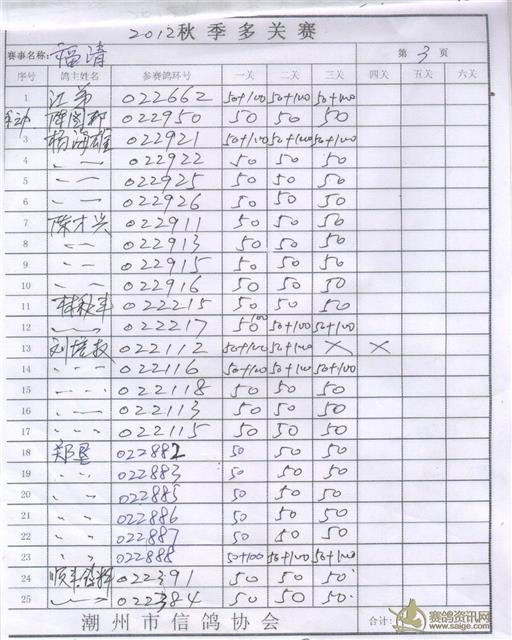 2012秋季多关赛
赛事名称: 福清 第 3 页
序号 鸽主姓名 参赛鸽环号 一关 二关 三关 四关 五关 六关
1 江弟 022662 50+100 50+100 50+100
022950 50 50 50
3 杨海雄 022921 50+100 50+100 50+100
4 〃 022922 50 50 50
5 〃 022925 50 50 50
6 〃 022926 50 50 50
7 陈才兴 022911 50 50 50
8 〃 022913 50 50 50
9 〃 022915 50 50 50
10 〃 022916 50 50 50
11 林秋丰 022215 50 50 50
12 〃 022217 50 100 50+100 50+100
13 022112 50+100 50+100 × ×
14 〃 022116 50+100 50+100 50+100
15 〃 022118 50 50 50
16 〃 022113 50 50 50
17 〃 022115 50 50 50
18 郑恳 022882 50 50 50
19 〃 022883 50 50 50
20 〃 022885 50 50 50
21 〃 022886 50 50 50
22 〃 022887 50 50 50
23 〃 022888 50+100 50+100 50+100
24 022391 50 50 50
25 〃 022384 50 50 50
潮州市信鸽协会 合计:
赛鸽资讯网
www.saige.com